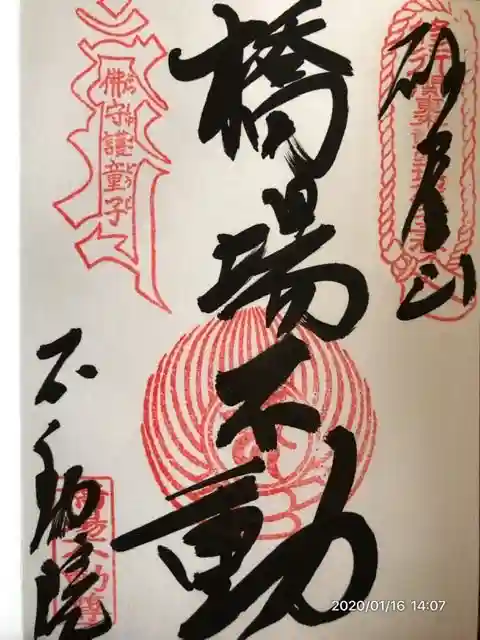 砂尾山
橋場不動
佛守護童子
不動院
橋場不動尊
2020/01/16 14:07